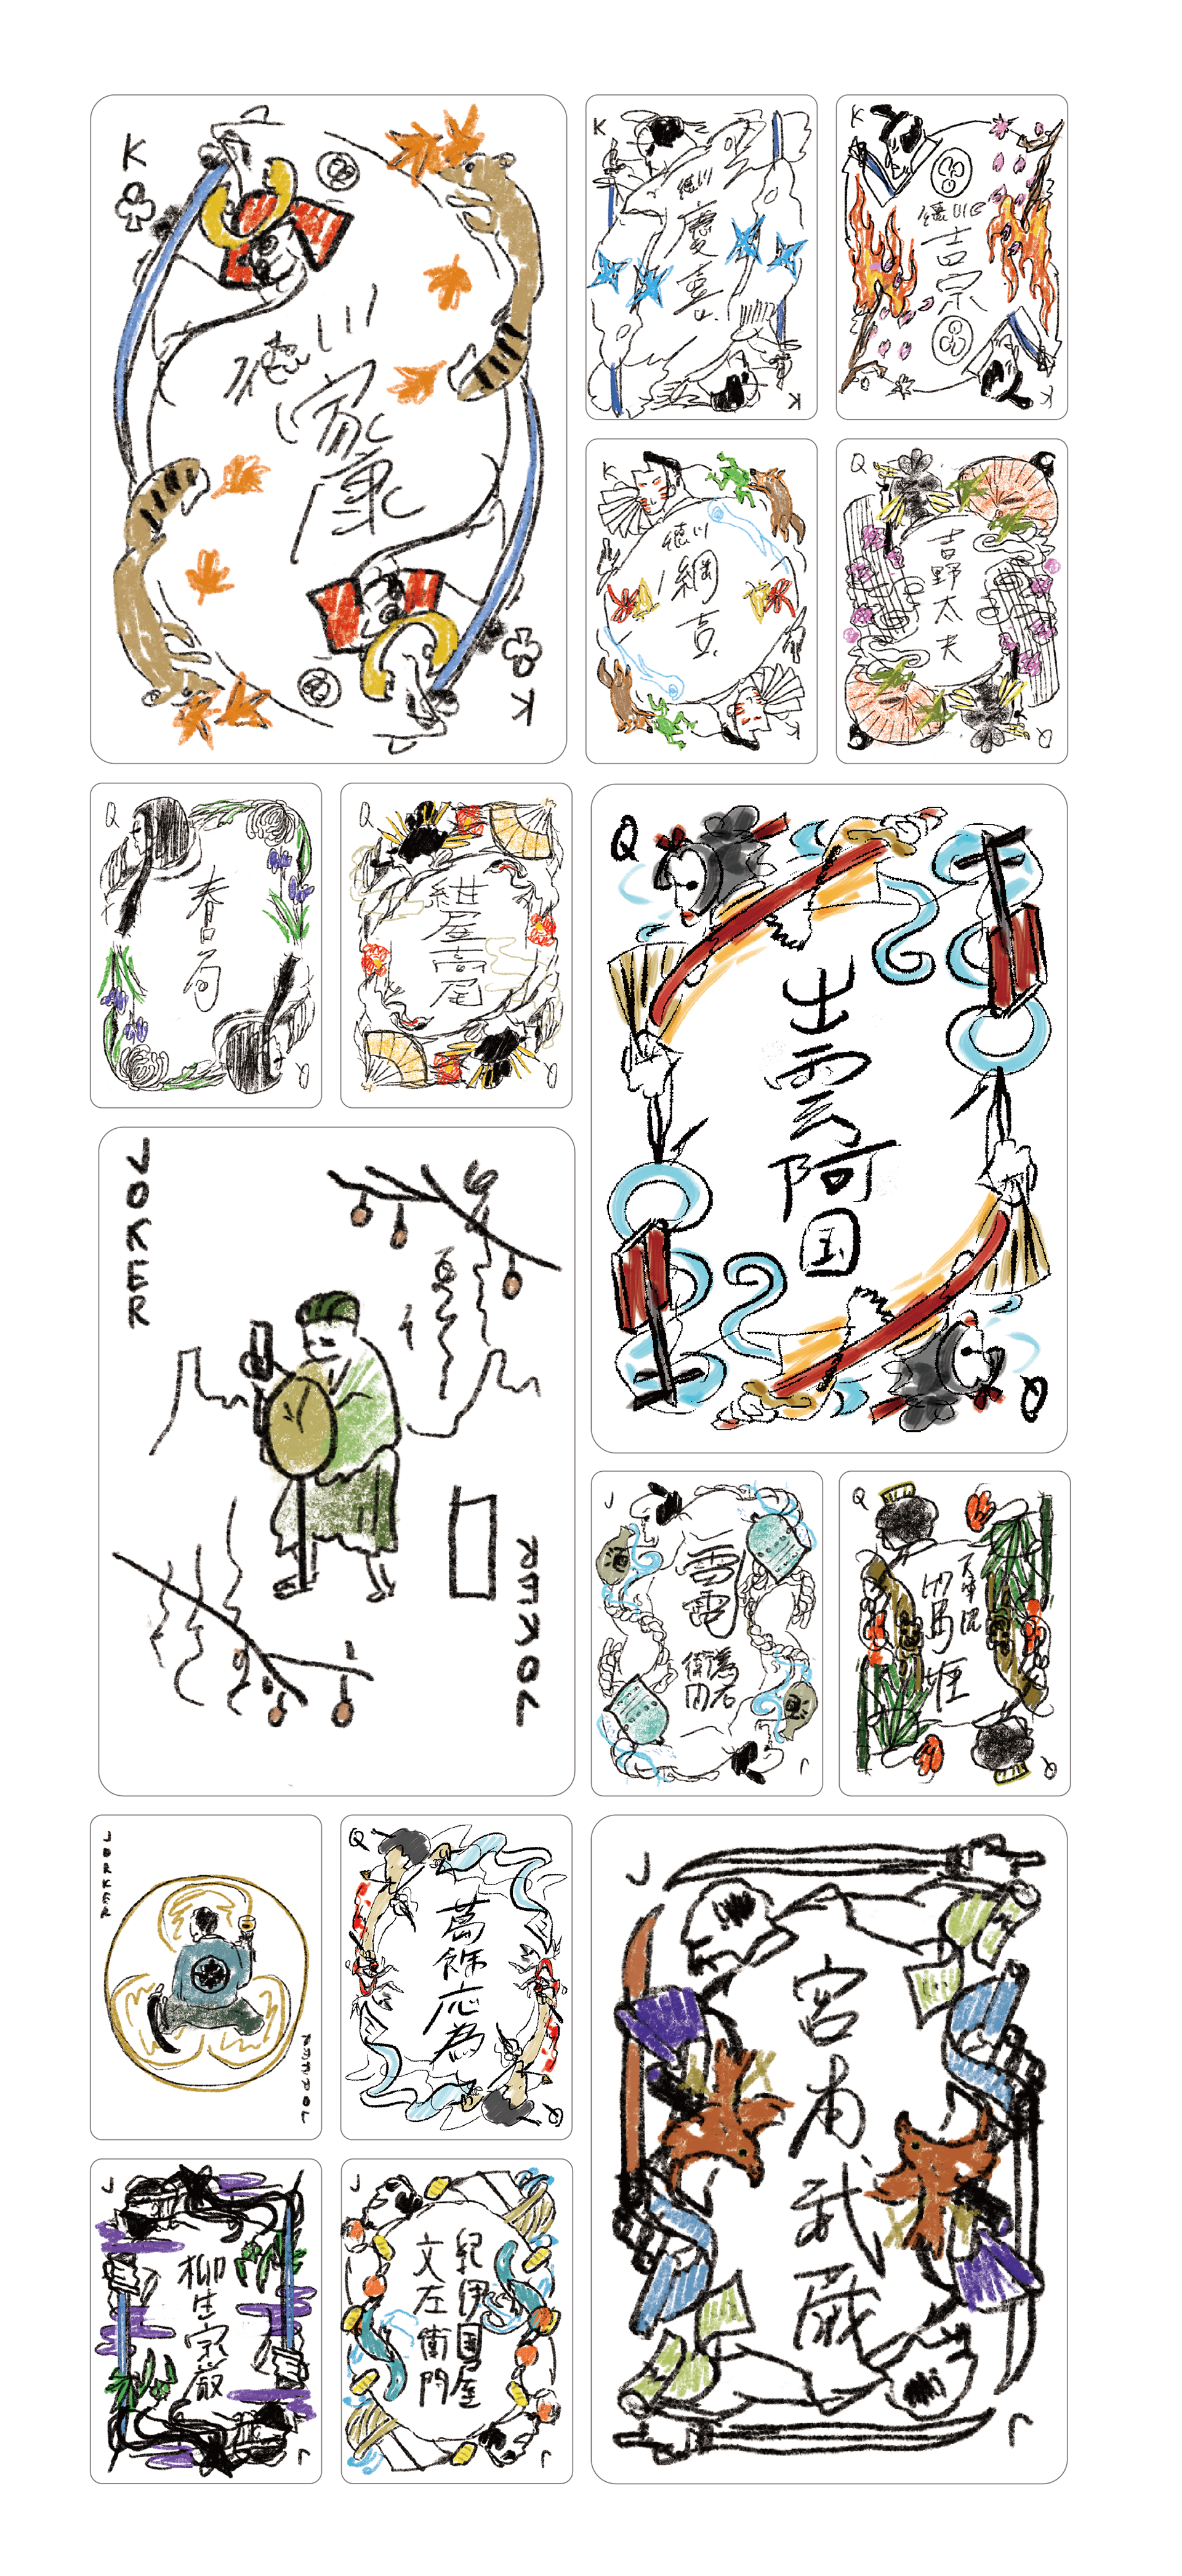 K
徳川
家康
K
K
徳川
慶喜
K
K
徳川
吉宗
K
K
徳川
綱吉
K
Q
吉野太夫
Q
Q
春日局
Q
Q
紺屋高尾
Q
Q
出雲阿国
Q
JOKER
JOKER
J
雷電
為右
衛門
J
Q
姫
Q
JORKER
Q
葛飾応為
Q
J
宮本武蔵
J
J
柳生宗厳
J
J
紀伊国屋
文左衛門
J